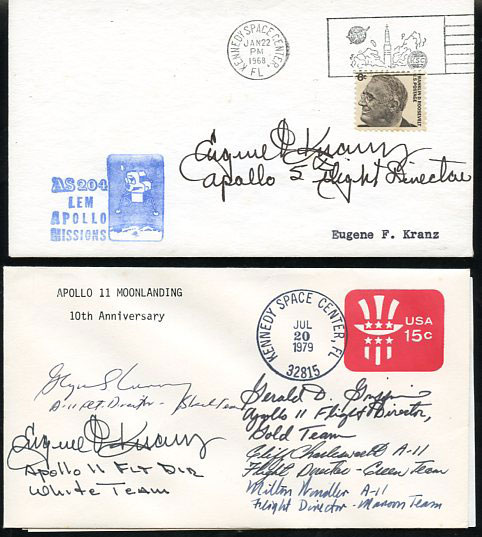 KENNEDY SPACE CENTER,
JAN 22
PM
1968
FL
KSC
6¢
FRANKLIN D. ROOSEVELT
U.S. POSTAGE
Eugene F Kranz
Apollo 5 Flight Director
AS204
LEM
APOLLO
MISSIONS
Eugene F. Kranz
APOLLO 11 MOONLANDING
10th Anniversary
KENNEDY SPACE CENTER, FL
JUL
20
1979
32815
USA
15c
Glynn S Lunney
A-11 Flt. Director - Black Team
Eugene F Kranz
Apollo 11 FLT DIR
White Team
Gerald D. Griffin
Apollo 11 Flight Director,
Gold Team
Cliff Charlesworth A-11
Flight Director - Green Team
Milton Windler A-11
Flight Director - Maroon Team